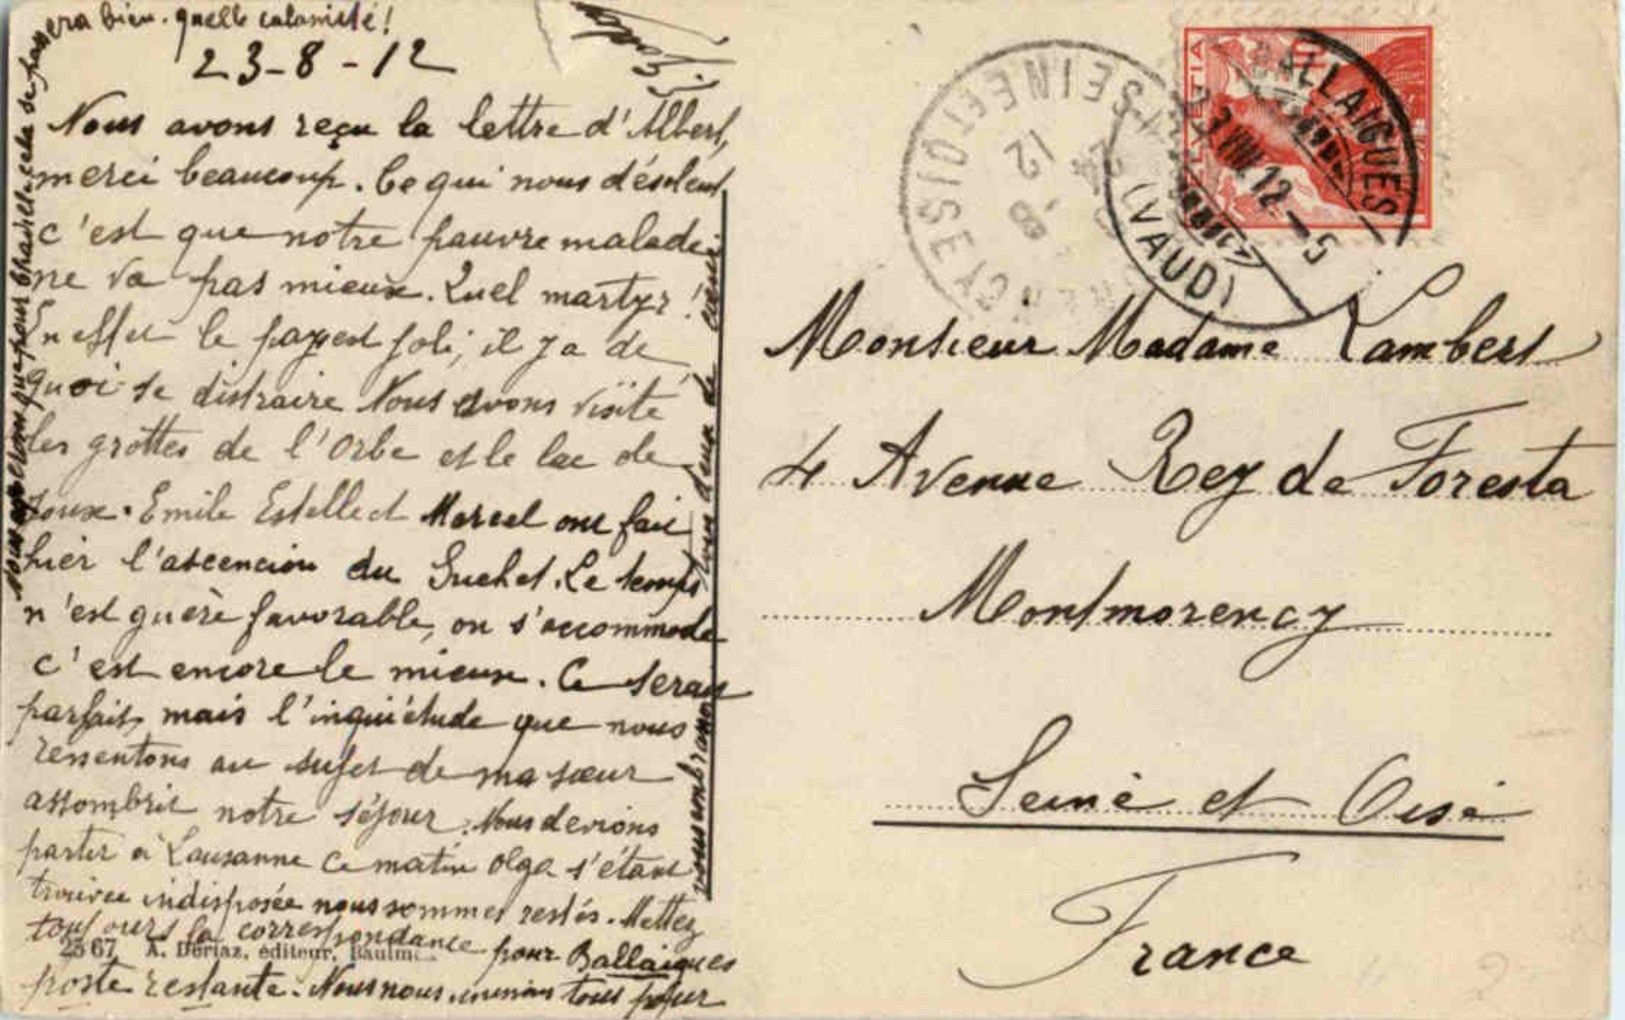 sera bien. quelle calamité!
23-8-12
Nous avons reçu la lettre d'Albert,
merci beaucoup. Ce qui nous désolent
c'est que notre pauvre malade
ne va pas mieux. Quel martyr!
En effet le pays est joli, il y a de
quoi se distraire Nous avons visité
les grottes de l'Orbe et le lac de
Joux. Emile Estelle et Marcel ont fait
hier l'ascencion du Suchet. Le temps
n'est guère favorable, on s'accommode
c'est encore le mieux. Ce serait
parfait, mais l'inquiétude que nous
ressentons au sujet de ma sœur
assombrit notre séjour. Nous devions
partir à Lausanne ce matin Olga s'étant
trouvée indisposée nous sommes restés. Mettez
toujours la correspondance pour Ballaigues
poste restante. Nous nous unissons tous pour
vous embrasser tous deux de cœur
Nous espérons que pour cela se pass
2567 A. Deriaz, éditeur, Baulmes
Monsieur Madame Lambert
4 Avenue Rey de Foresta
Montmorency
Seine et Oise
France
HELVETIA
10
BALLAIGUES
VIII.12-5
(VAUD)
SEINE ET OISE
24 -8 12